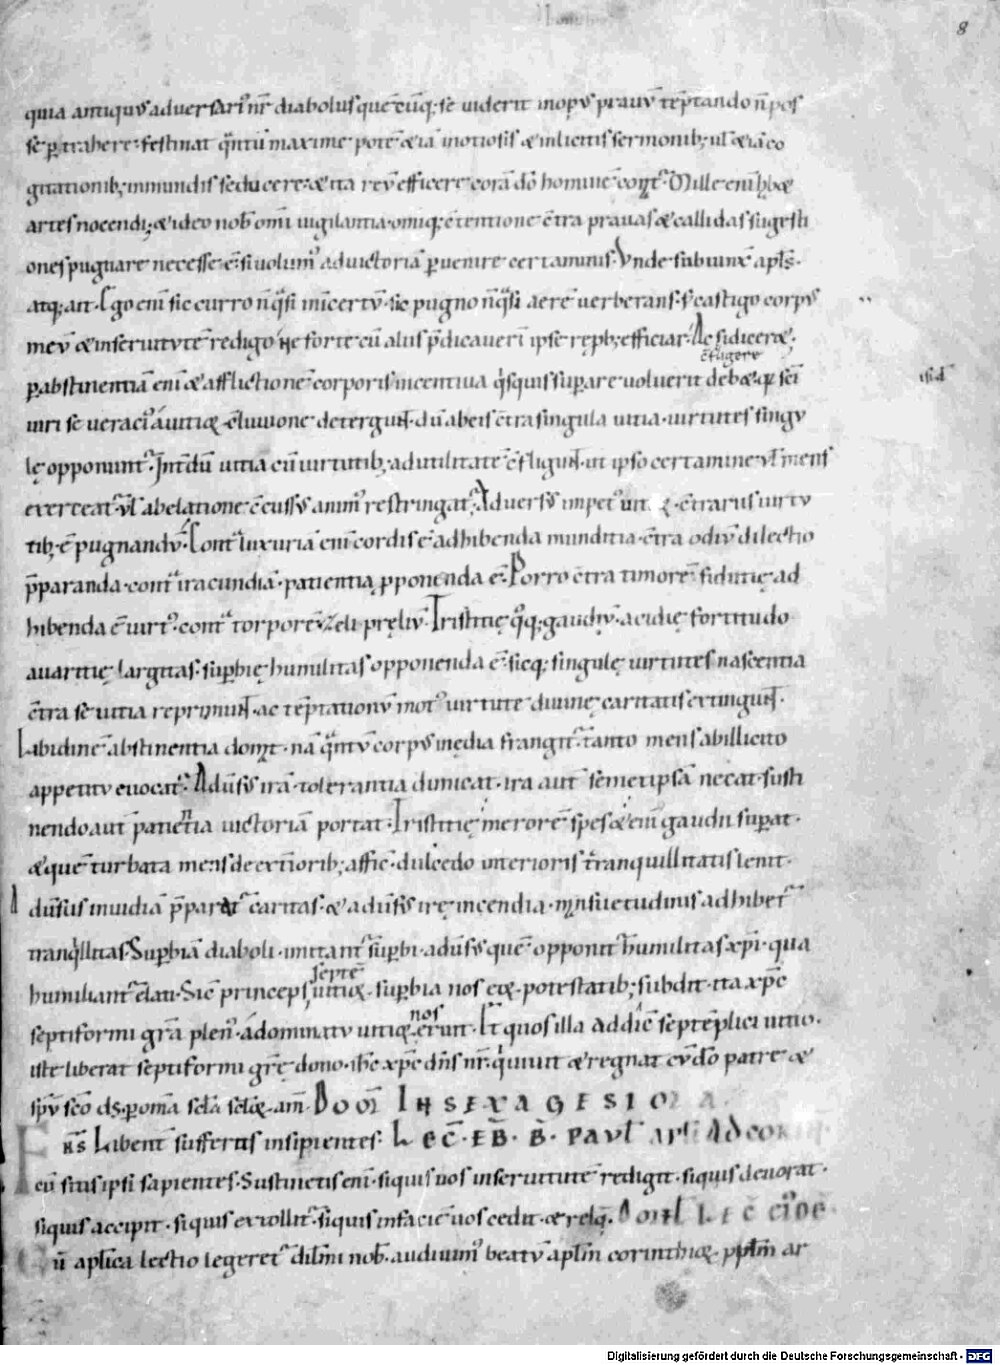 8
quia antiquus adversari' nr̄ diabolus quēcūq; se viderit in opus pravū tēptando n̄ pos
se ꝑtrahere festinat qntū maxime potē & iā in otiosis & inlicitis sermonib; ul & iā co
gitationib; inmundis seducere & ita reū efficere corā dō hominē
artes nocendi; & ideo nob omi vigilantia omiq; ētentione ētra pravas & callidas sugesti
ones pugnare necesse ē si volum' ad victoriā ꝑvenire certaminis. Unde subiunx apls
atq; ait. Ego enī sic curro n qsi in incertū. sic pugno n qsi aerē verberans. s; castigo corpus
meū & in servitute redigo ne forte cū aliis p̄dicaverī ipse repb; efficiar. Ac si dicer&.
ēfligere
ꝑ abstinentiā enī & afflictionē corporis incentiva qsquis suꝑare voluerit deb& qꝫ scī
viri se veraci' a vitioꝝ ēluvione detergunt. dū ab eis ētra singula vitia virtutes singu
lę opponunt'. Int dū vitia cū virtutib; ad utilitatē ēfligunt. ut ipso certamine ul mens
exerceat'. ul ab elatione ēcussus anim' restringat'. Adversus impet' ētrariis virtu
tib; ē pugnandū. Cont luxuriā enī cordis ē adhibenda munditia. ētra odiū dilectio
p̄paranda. cont iracundiā patientia ꝓponenda ē. Porro ētra timorē fidutię ad
hibenda ē virt'. cont torporē zeli pręliū. Tristitię qq; gaudiū. acidię fortitudo
avaritię largitas. suꝑbię humilitas opponenda ē. sicq; singulę virtutes nascentia
ētra se vitia reprimunt. ac tēptationū mot' virtute divinę caritatis extingunt.
Libidinē abstinentia domat. nā qntū corpus inedia frangit'. tanto mens ab illicito
appetitu evocat'. Adūsus irā tolerantia dimicat. ira aut semetipsā necat. susti
nendo aut patientia victoriā portat. Tristitię merorē spes & enī gaudii suꝑat.
& quē turbata mens de extiorib; affic. dulcedo interioris tranquillitatis lenit.
Adūsus invidiā p̄parat' caritas. & adūsus irę incendia. mansuetudinis adhibet'
tranqllitas. Suꝑbiā diaboli imitant' suꝑbi. adūsus quē opponit' humilitas xp̄i. qua
septē
humiliant' elati. Sic princeps vitioꝝ. suꝑbia nos eoꝝ potestatib; subdit. ita xp̄c
nos
septiformi grā plen'. a dominatu vitioꝝ eruit. Et quos illa addic septēplici vitio.
iste liberat septiformi grę dono. ihc xp̄c dn̄s nr̄. qi vivit & regnat cū dō patre &
spū scō ds. ꝑ omīa scla scloꝝ. am. Dom IN SEXAGESIMA
FRS Libent suffertis insipientes. LEC. EB. B. PAVL APLI AD CORINTH.
cū sitis ipsi sapientes. Sustinetis enī si quis vos in servitutē redigit. si quis devorat.
si quis accipit. si quis extollit'. si quis in faciē vos cedit. & relq. DOM LECCIONE.
Cū aplica lectio legeret' dilmi nob. audivim' beatū aplm corinthioꝝ pplm ar